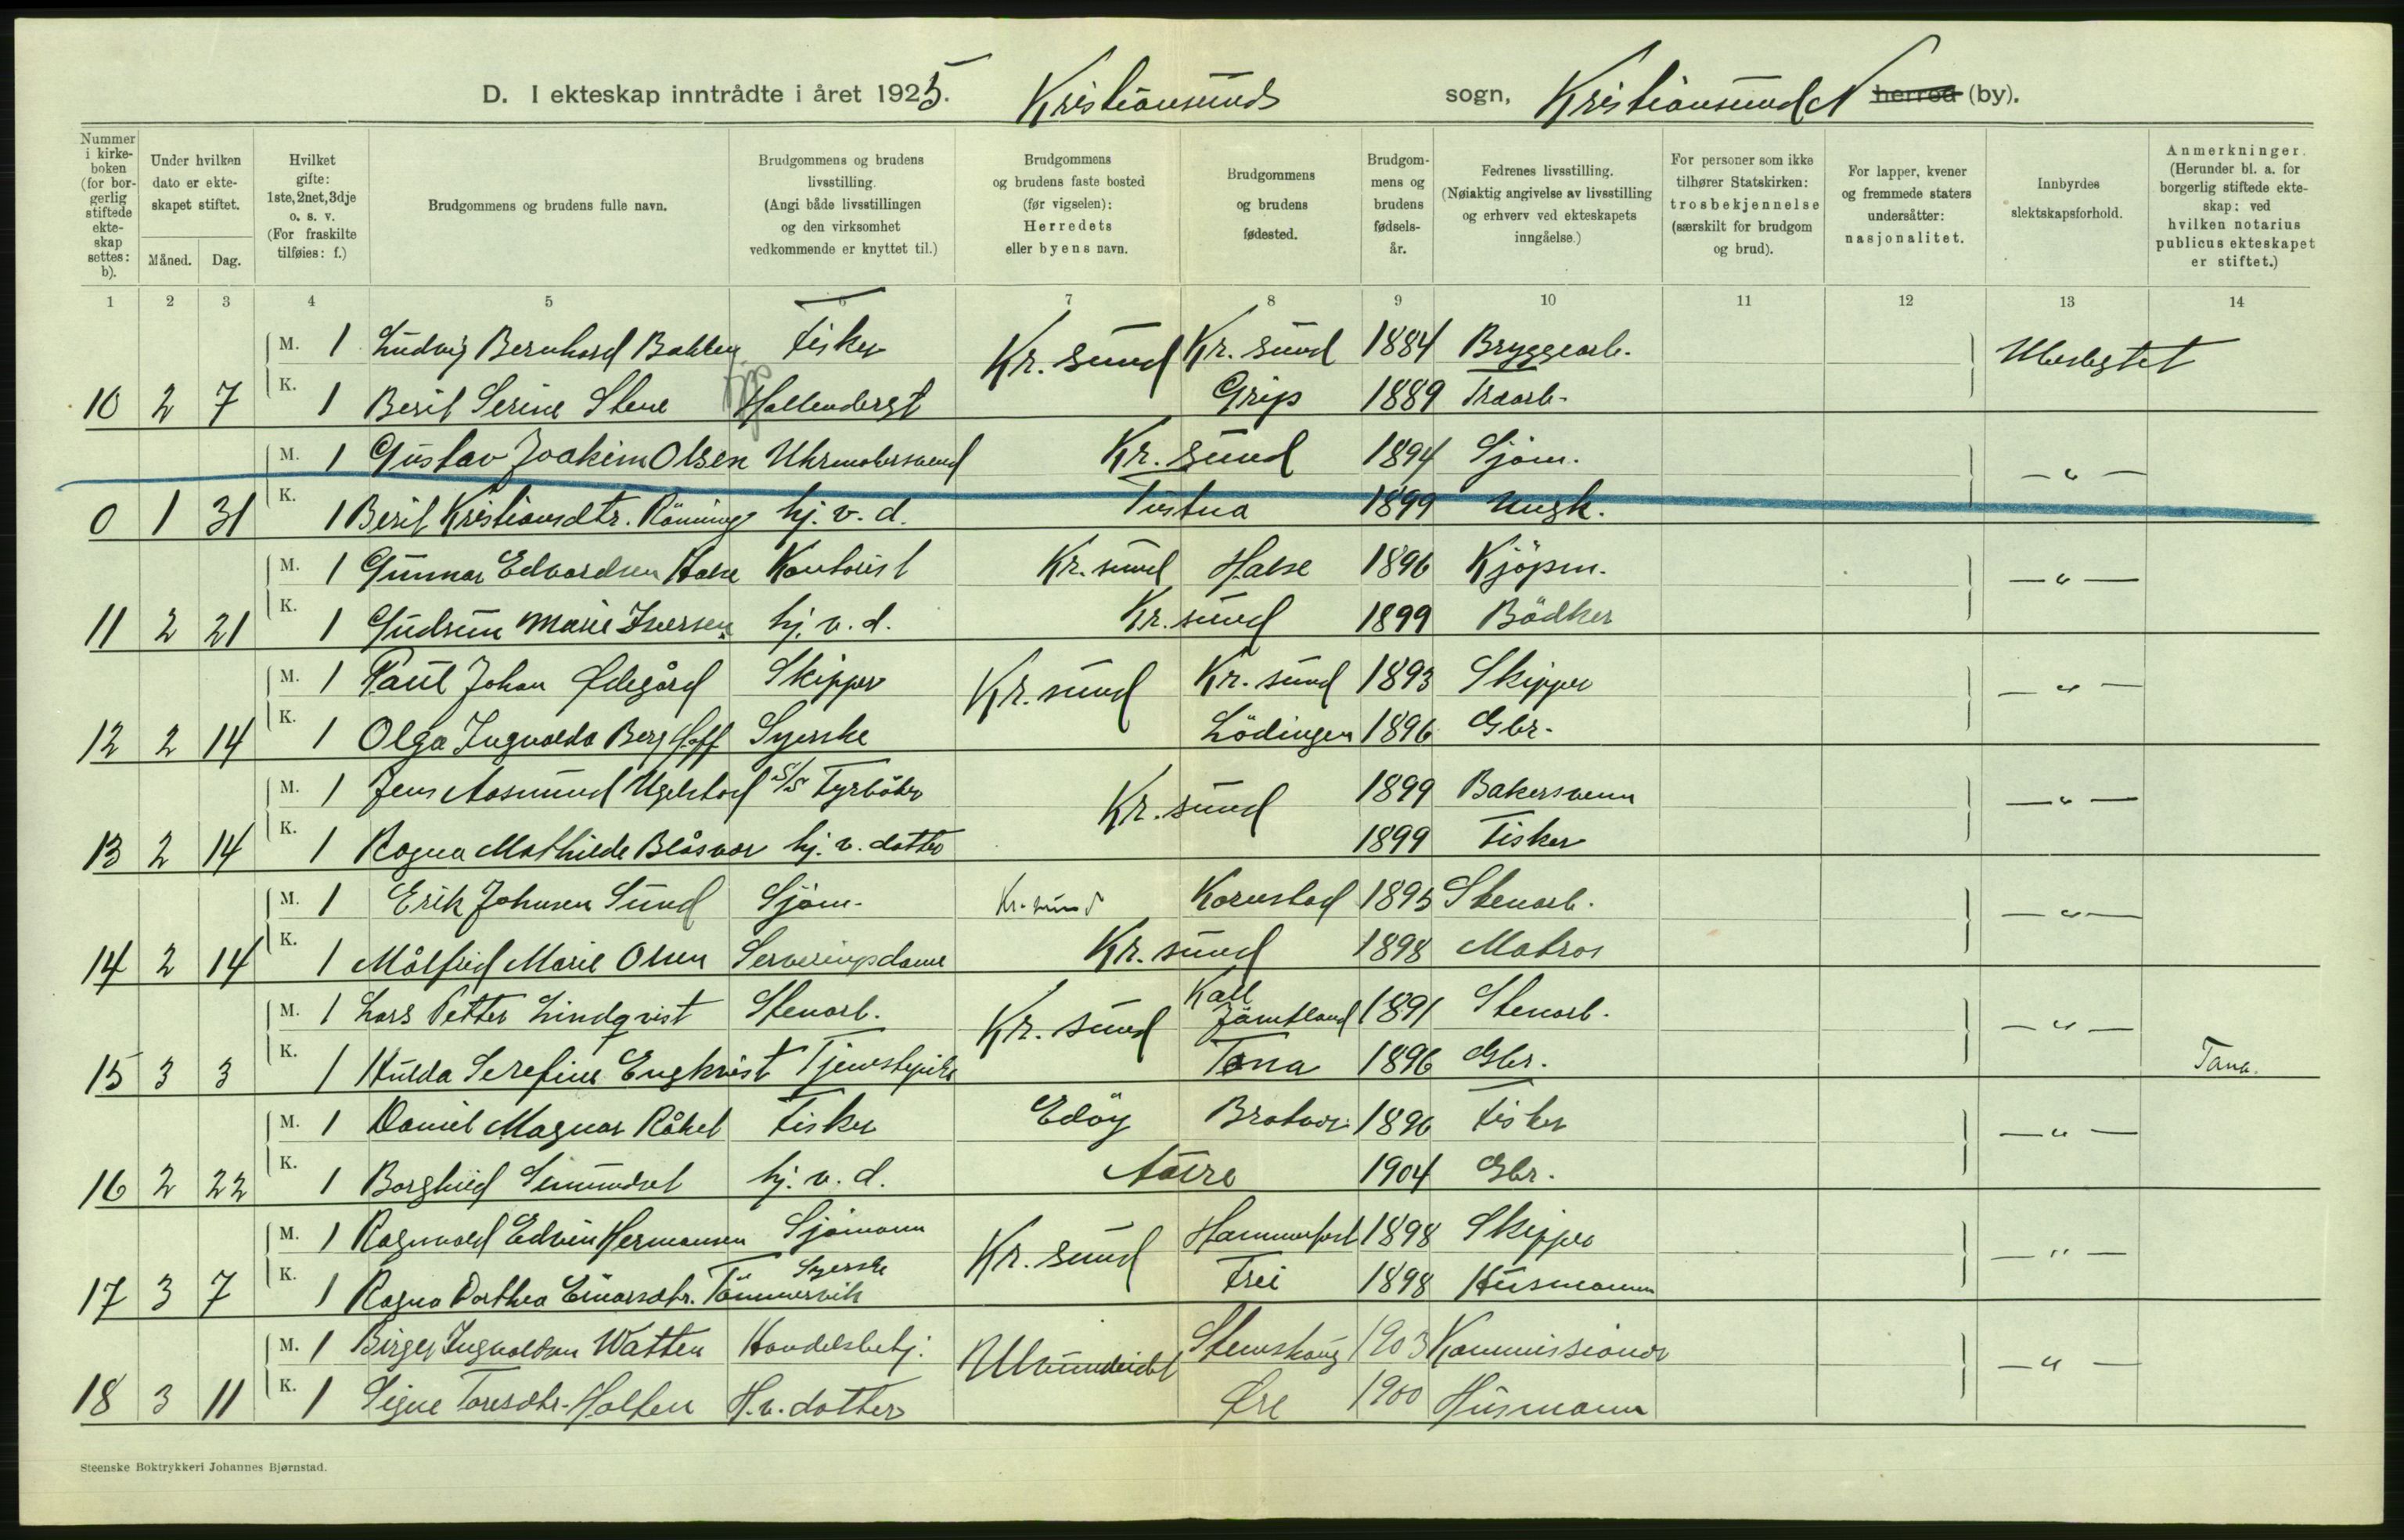 D. I ekteskap inntrådte i året 1925. Kristiansunds sogn, Kristiansund N herred (by).
Nummer i kirkeboken (for borgerlig stiftede ekteskap settes: b).
Under hvilken dato er ekteskapet stiftet.
Måned. Dag.
Hvilket gifte: 1ste, 2net, 3dje o. s. v. (For fraskilte tilføies: f.)
Brudgommens og brudens fulle navn.
Brudgommens og brudens livsstilling. (Angi både livsstillingen og den virksomhet vedkommende er knyttet til.)
Brudgommens og brudens faste bosted (før vigselen): Herredets eller byens navn.
Brudgommens og brudens fødested.
Brudgommens og brudens fødselsår.
Fedrenes livsstilling. (Nøiaktig angivelse av livsstilling og erhverv ved ekteskapets inngåelse.)
For personer som ikke tilhører Statskirken: trosbekjennelse (særskilt for brudgom og brud).
For lapper, kvener og fremmede staters undersåtter: nasjonalitet.
Innbyrdes slektskapsforhold.
Anmerkninger. (Herunder bl. a. for borgerlig stiftede ekteskap: ved hvilken notarius publicus ekteskapet er stiftet.)
1 2 3 4 5 6 7 8 9 10 11 12 13 14
M. 1 Ludvig Bernhard Bakken Fisker Kr. sund Kr. sund 1884 Bryggearb. Ubeslegtet
10 2 7 K. 1 Berit Serine Stene Grip 1889 Træarb.
M. 1 Gustav Joakim Olsen Uhrmakersvend Kr. sund 1894 Sjøm. — " —
0 1 31 K. 1 Berit Kristiansdtr. Rönning hj. v. d. Tustna 1899 Ungk.
M. 1 Gunnar Edvardsen Halse Kontorist Kr. sund Halse 1896 Kjöpm. — " —
11 2 21 K. 1 Gudrun Marie Iversen hj. v. d. Kr. sund 1899 Bödker
M. 1 Paul Johan Ødegård Skipper Kr. sund Kr. sund 1893 Skipper — " —
12 2 14 K. 1 Olga Ingvalda Berg Hoff Syerske Lödingen 1896 Gbr.
M. 1 Jens Aasmund Ugelstad S/S Fyrböter Kr. sund 1899 Bakersvenn — " —
13 2 14 K. 1 Ragna Mathilde Blåsvær hj. v. datter 1899 Fisker
M. 1 Erik Johnsen Sund Sjøm. Kr. sund Kornstad 1895 Stenarb. — " —
14 2 14 K. 1 Målfrid Marie Olsen Serveringsdame Kr. sund 1898 Matros
M. 1 Lars Petter Lindqvist Stenarb. Kr. sund Kall Jämtland 1891 Stenarb. — " —
15 3 3 K. 1 Hulda Serefine Engkvist Tjenestepike Tana 1896 Gbr. Tana.
M. 1 Daniel Magnar Råket Fisker Edöy Brattvær 1896 Fisker — " —
16 2 22 K. 1 Borghild Seimundset hj. v. d. Aure 1904 Gbr.
M. 1 Ragnvald Edvin Hermansen Sjømann Kr. sund Hammerfest 1898 Skipper — " —
17 3 7 K. 1 Ragna Dorthea Einarsdtr. Tömmervik Syerske Frei 1898 Husmann
M. 1 Birger Ingvaldsen Watten Handelsbetj. Stemshaug 1903 Kommissionær — " —
18 3 11 K. 1 Signe Toresdtr. Holten H. v. datter Øre 1900 Husmann
Steenske Boktrykkeri Johannes Bjørnstad.